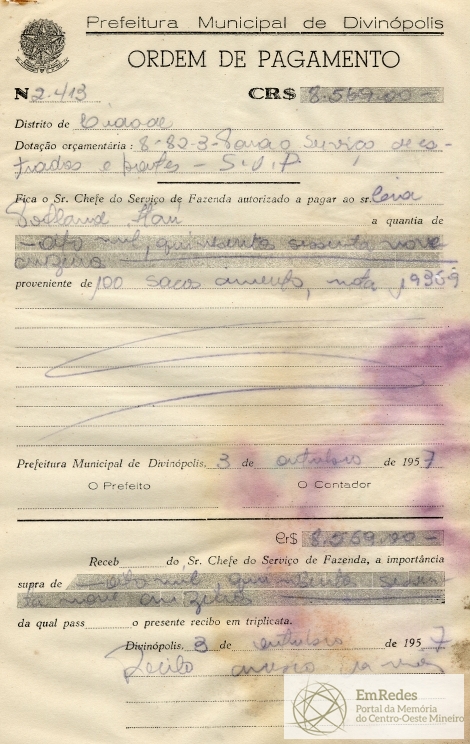 Prefeitura Municipal de Divinópolis
ORDEM DE PAGAMENTO
N 2.413 CR$ 8.569,00-
Distrito de Cidade
Dotação orçamentária : 8-82-3-Para o Serviço de es-
tradas e pontes - S.V.P
Fica o Sr. Chefe do Serviço de Fazenda autorizado a pagar ao sr.
a quantia de
-oito mil, quinhentos sessenta nove
cruzeiros
proveniente de 100 sacos cimento, nota 19369
Prefeitura Municipal de Divinópolis, 3 de outubro de 1957
O Prefeito O Contador
Cr$ 8.569,00-
Receb do Sr. Chefe do Serviço de Fazenda, a importância
supra de -oito mil quinhentos sessen-
ta nove cruzeiros
da qual pass o presente recibo em triplicata.
Divinópolis, 3 de outubro de 1957
EmRedes
Portal da Memória
do Centro-Oeste Mineiro